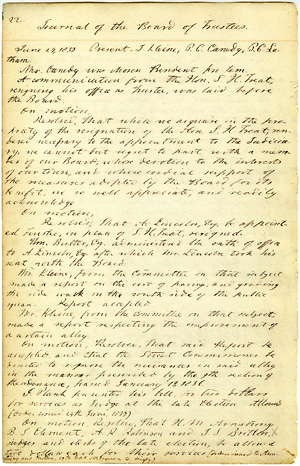 22.
Journal of the Board of Trustees.
June 12, 1839 Present. J. Klein, P. C. Canedy, P. C. La-
tham.
Mr. Canedy was chosen President pro tem
A communication from the Hon. S. H. Treat,
resigning his office as Trustee, was laid before
the Board.
On motion,
Resolved, That while we acquiesce in the pro-
priety of the resignation of the Hon. S. H. Treat, ren-
dered necessary by the appointment to the Judicia-
ry, we cannot but regret to part with a mem-
ber of our Board, whose devotion to the interests
of our town, and whose cordial support of
the measures adopted by the Board for its
benefit, we so well appreciate, and readily
acknowledge
On motion,
Resolved, That A. Lincoln, Esq. be appoint-
ed Trustee, in place of S. H. Treat, resigned.
Wm. Butler, Esq. administered the oath of office
to A. Lincoln, Esq. after which Mr. Lincoln took his
seat with the Board.
Mr. Klein, from the Committee on that subject
made a report on the cost of paving, and grading
the side walk on the south side of the public
square. Report accepted.
Mr. Klein from the committee on that subject,
made a report respecting the improvement of
a certain alley.
On motion, Resolved, That said Report be
accepted, and that the Street Commissioner be
directed to open the
in the manner prescribed by the 7th section of
the Ordinance, passed January 12, 1836.
presented his bill, for two dollars
for services as Judge at the late Election Allowed
(Order issued 4th June, 1839)
On motion Resolved, That H. M. Armstrong
B. S. Clement, A. R. Robinson and
Judges and Clerks of the late election, be allowed
two dollars each for their services